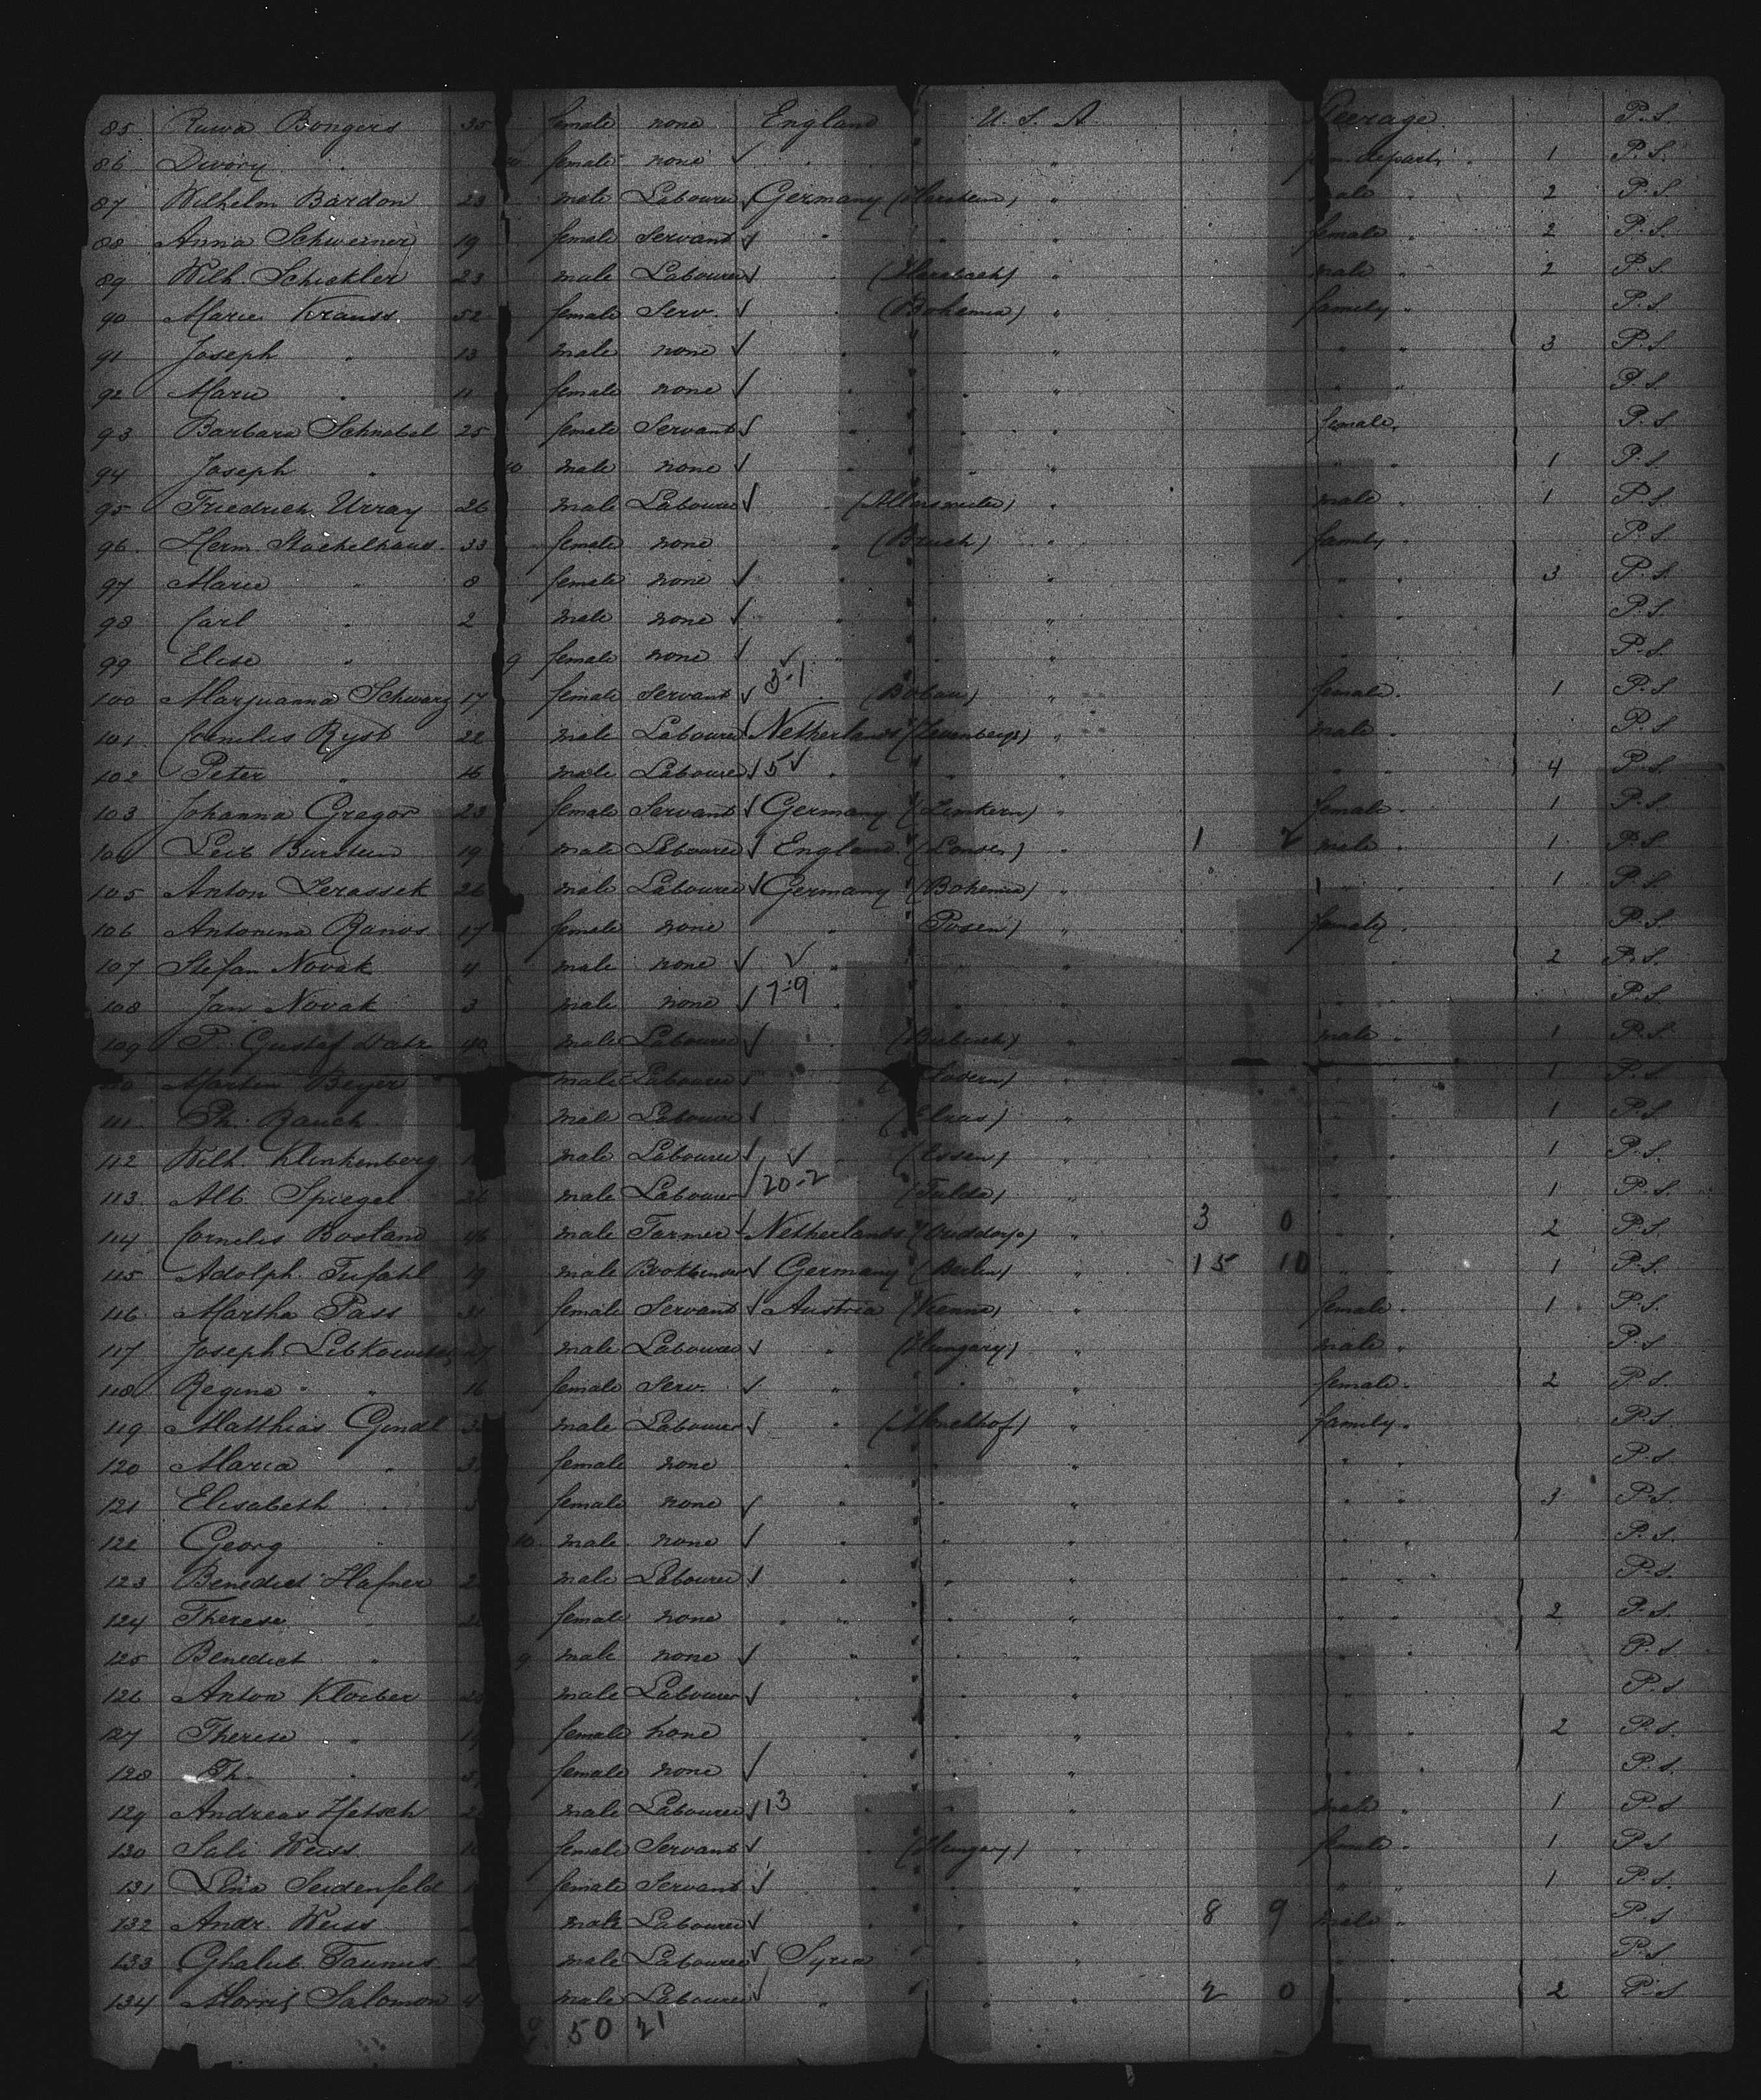 85 Ruwa Bongers 35 female none England U. S. A. Steerage P. S.
86 Dwory " female none ✓ " " departm. 1 P. S.
87 Wilhelm Bardon 23 male Labourer ✓ Germany " male " 2 P. S.
88 Anna Schwerner 19 female Servant ✓ " " " female " 2 P. S.
89 Wilh. Schickler 23 male Labourer ✓ " " male " 2 P. S.
90 Marie Krauss 52 female Serv. ✓ " (Bohemia) " family " P. S.
91 Joseph " 13 male none ✓ " " " " 3 P. S.
92 Marie " 11 female none ✓ " " " " P. S.
93 Barbara Schnabel 25 female Servant ✓ " " " female " P. S.
94 Joseph " 10 male none ✓ " " " " 1 P. S.
95 Friedrich Urray 26 male Labourer ✓ " " male " 1 P. S.
96 Herm. Stachelhaus 33 female none " (Bruch) " family " P. S.
97 Marie " 8 female none ✓ " " " " 3 P. S.
98 Carl " 2 male none ✓ " " " " P. S.
99 Elise " 9 female none ✓ ✓ " " " P. S.
100 Maryuanna Schwarz 17 female Servant ✓ 3-1 " " female " 1 P. S.
101 Cornelis Ryst 22 male Labourer ✓ Netherlands (Zevenbergs) " male " P. S.
102 Peter " 16 male Labourer ✓ 5 ✓ " " " " 4 P. S.
103 Johanna Gregor 23 female Servant ✓ Germany " female " 1 P. S.
104 Leib Burstein 19 male Labourer ✓ England " 1 2 male " 1 P. S.
105 Anton Zerassek 26 male Labourer ✓ Germany (Bohemia) " " " 1 P. S.
106 Antonina Ranos 17 female none " Posen) " family " P. S.
107 Stefan Novak 4 male none ✓ ✓ " " " " 2 P. S.
108 Jan Novak 3 male none ✓ 7-9 " " " " P. S.
109 P. Gustaf 40 male Labourer ✓ " " male " 1 P. S.
Martin Beyer male Labourer ✓ " " " " 1 P. S.
111 Ph. Rauch male Labourer ✓ " (Elsas) " " " 1 P. S.
112 Wilh. Klinkenberg male Labourer ✓ ✓ " (Essen) " " " 1 P. S.
113 Alb. Spiegel 26 male Labourer ✓ 20-2 (Fulda) " " " 1 P. S.
114 Cornelis Bostand 46 male Farmer ✓ Netherlands (Ouddorp) " 3 0 " " 2 P. S.
115 Adolph Tufahl 19 male Bookbinder ✓ Germany (Berlin) " 15 10 " " 1 P. S.
116 Martha Pass 31 female Servant ✓ Austria (Vienna) " female " 1 P. S.
117 Joseph male Labourer ✓ " (Hungary) " male " P. S.
118 Regina " " 16 female Serv. ✓ " " " female " 2 P. S.
119 Matthias Gindl male Labourer ✓ " " family " P. S.
120 Maria " female none " " " " " P. S.
121 Elisabeth " female none ✓ " " " " " 3 P. S.
122 Georg " 10 male none ✓ " " " " " P. S.
123 Benedict Hafner male Labourer ✓ " " " " " P. S.
124 Therese " female none " " " " " 2 P. S.
125 Benedict " 9 male none ✓ " " " " P. S.
126 Anton Kloiber male Labourer ✓ " " " " P. S.
127 Therese " female none " " " " " 2 P. S.
128 Th. " female none ✓ " " " " P. S.
129 Andreas Hetsch male Labourer ✓ 13 " " " male " 1 P. S.
130 Sali Weiss female Servant ✓ " (Hungary) " female " 1 P. S.
131 Lina Seidenfeld female Servant ✓ " " " " " 1 P. S.
132 Andr. Weiss male Labourer ✓ " " " 8 9 male " P. S.
133 Ghalub Taunus male Labourer ✓ Syria " " " P. S.
134 Morris Salomon male Labourer ✓ " " " 2 0 " " 2 P. S.
50 21